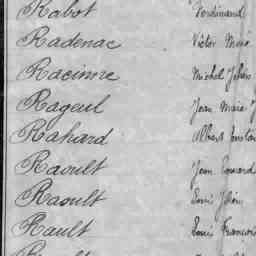 Rabot Ferdinand
Radenac Victor Marie
Racinne Michel Julien
Rageul Jean Marie J
Rahard Albert
Raoult Jean
Raoult Louis Julien
Rault Louis François